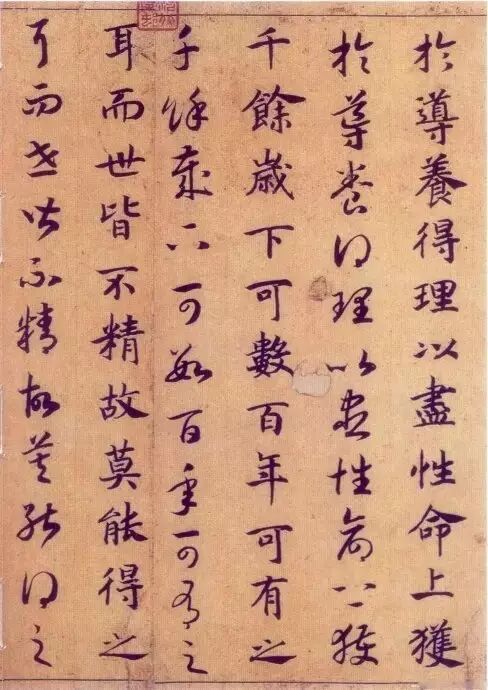 於導養得理以盡性命上獲
於導養得理以盡性命上獲
千餘歲下可數百年可有之
千餘歲下可數百年可有之
耳而世皆不精故莫能得之
耳而世皆不精故莫能得之